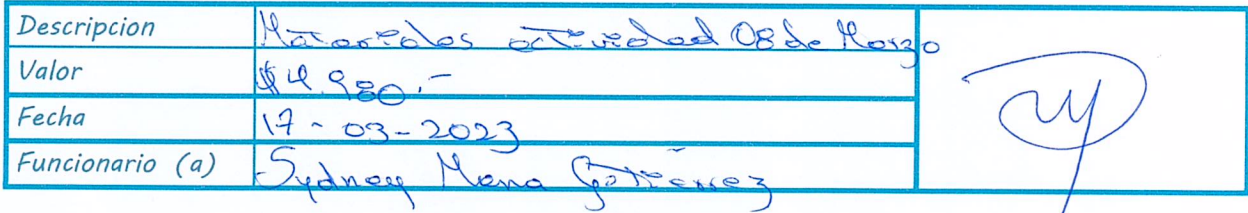 Descripcion Materiales actividad 08 de Marzo
Valor $4.980.-
Fecha 17-03-2023
Funcionario (a) Sydney Mena Gutierrez